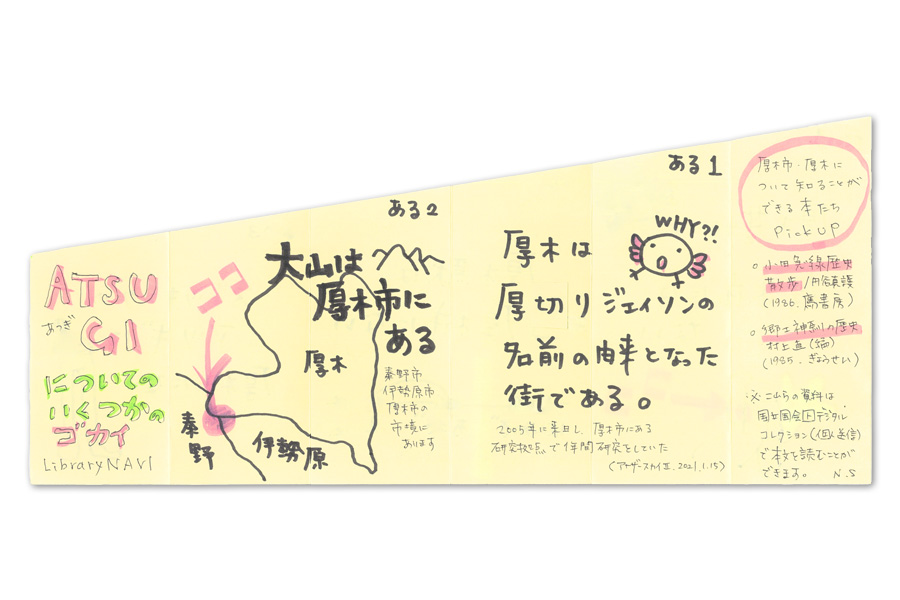 ATSU
あつぎ
GI
についての
いくつかの
ゴカイ
LibraryNAVI
ある2
ココ
大山は
厚木市に
ある
厚木
秦野市
伊勢原市
厚木市の
市境に
あります
秦野
伊勢原
ある1
WHY?!
厚木は
厚切りジェイソンの
名前の由来となった
街である。
2005年に来日し、厚木市にある
研究拠点で 年間研究をしていた
2021.1.15)
厚木市・厚木に
ついて知ることが
できる本たち
Pick UP
○小田急線歴史
散歩/円谷真護
(1986. 鷹書房)
○郷土神奈川の歴史
村上直(編)
(1985. ぎょうせい)
※これらの資料は
国立国会図デジタル
コレクション(個人送信)
で本文を読むことが
できます。 N.S